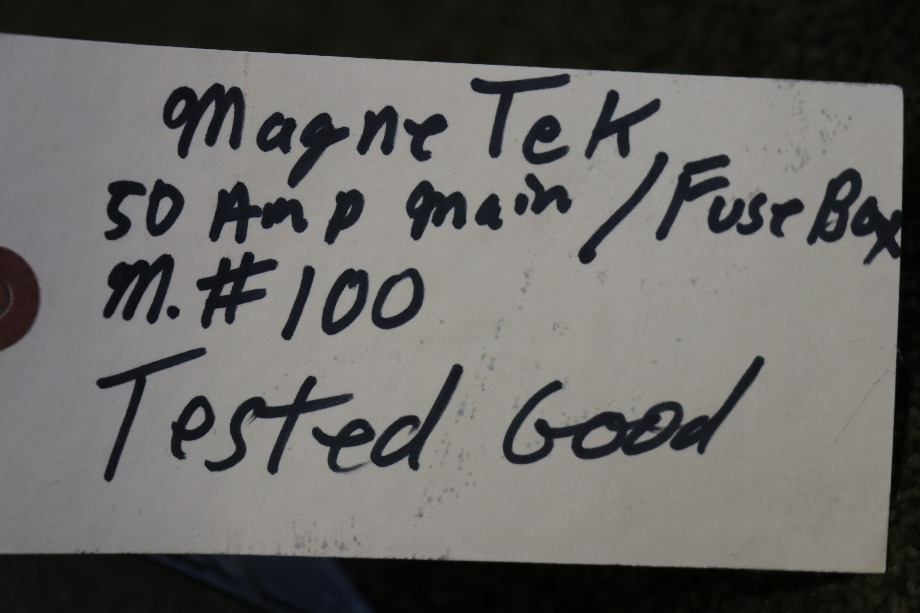 MagneTek
50 Amp Main / Fuse Box
M. # 100
Tested Good